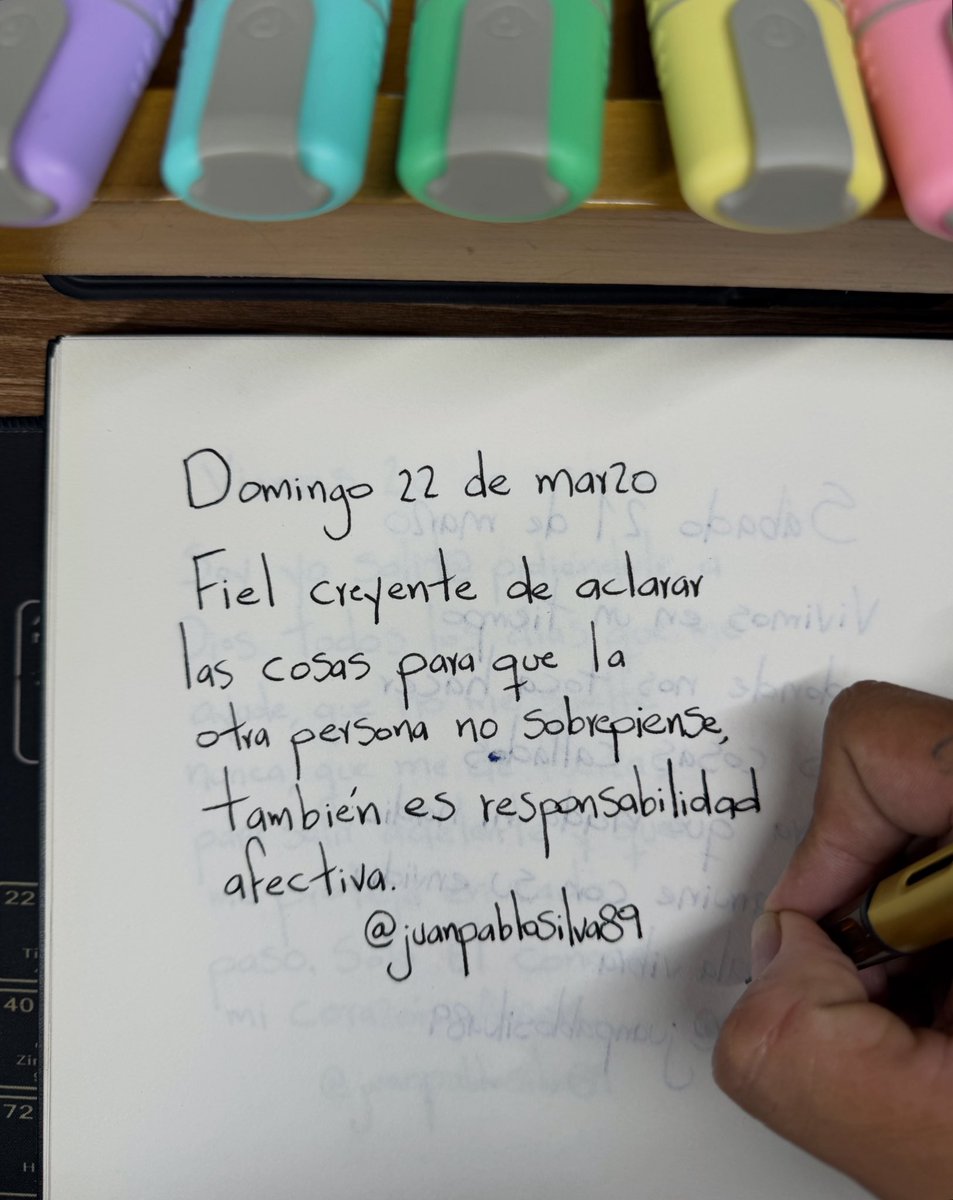 Domingo 22 de marzo
Fiel creyente de aclarar
las cosas para que la
otra persona no sobrepiense,
también es responsabilidad
afectiva.
@juanpablosilva89
22
Ti
40
Zir
72
H